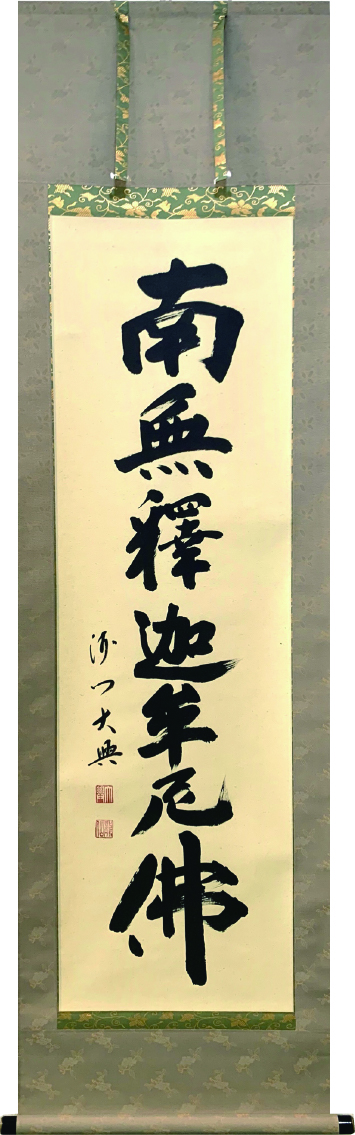 南無釋迦牟尼佛
沙門大典